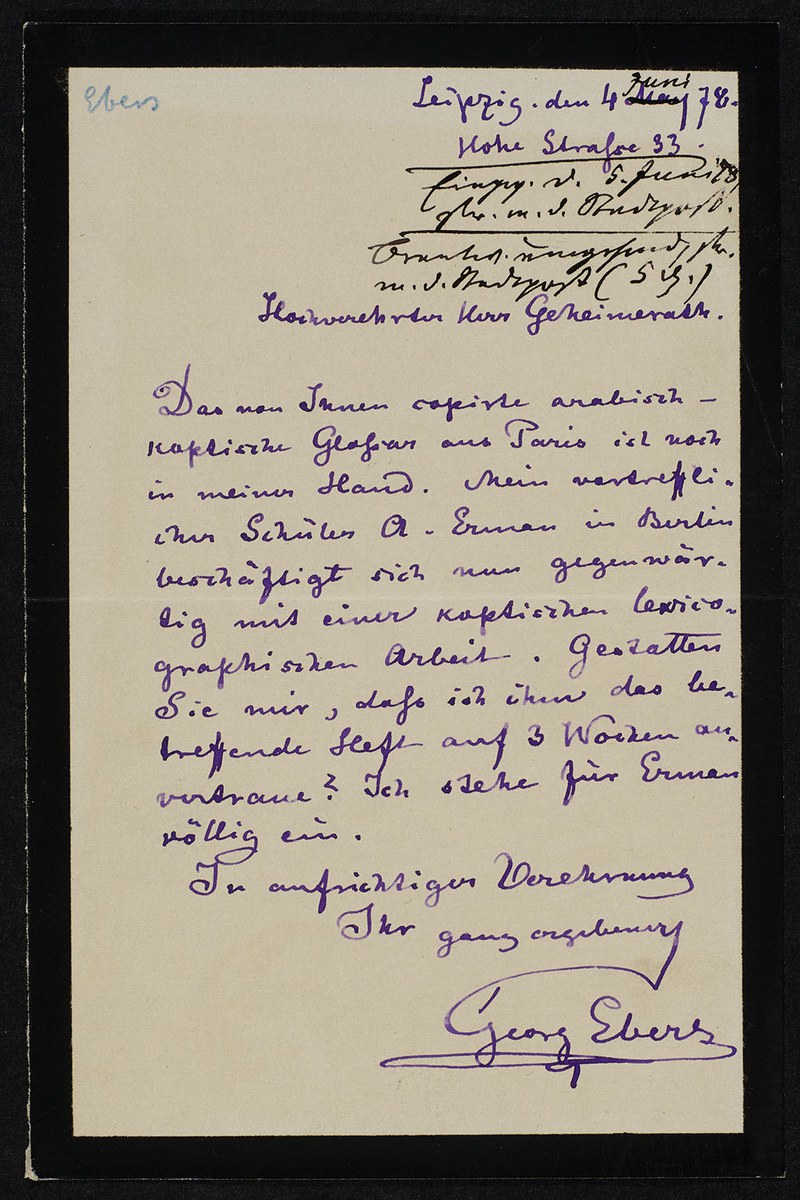 Ebers
Leipzig. den 4 May Juni 78.
Hohe Straße 33.
Eingg. d. 5. Juni 78
m. d. Stadtpost.
m. d. Stadtpost (5 )
Hochverehrter Herr Geheimerath.
Das von Ihnen copirte arabisch-
koptische Gloßar aus Paris ist noch
in meiner Hand. Mein vortreffli-
cher Schüler A. Erman in Berlin
beschäftigt sich nun gegenwär-
tig mit einer koptischen lexico-
graphischen Arbeit. Gestatten
Sie mir, daß ich ihm das be-
treffende Heft auf 3 Wochen an-
vertraue? Ich stehe für Erman
völlig ein.
In aufrichtiger Verehrung
Ihr ganz ergebenst
Georg Ebers